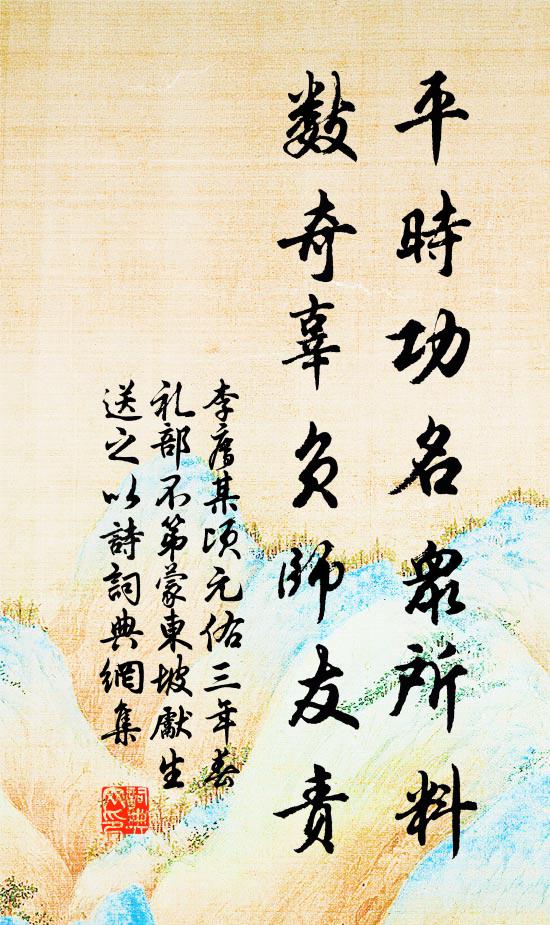 平時功名眾所料
數奇辜負師友責
李廌某頃元佑三年春
礼部不第蒙東坡獻生
送之以詩詞典網集